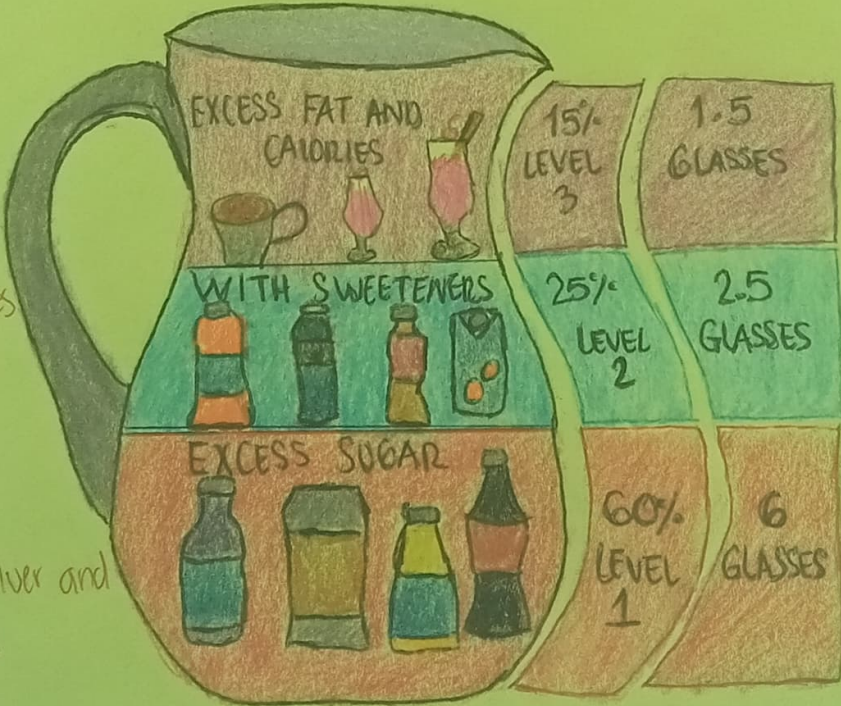 EXCESS FAT AND
CALORIES
15%
LEVEL
3
1.5
GLASSES
WITH SWEETENERS
25%
LEVEL
2
2.5
GLASSES
EXCESS SUGAR
60%
LEVEL
1
6
GLASSES
and